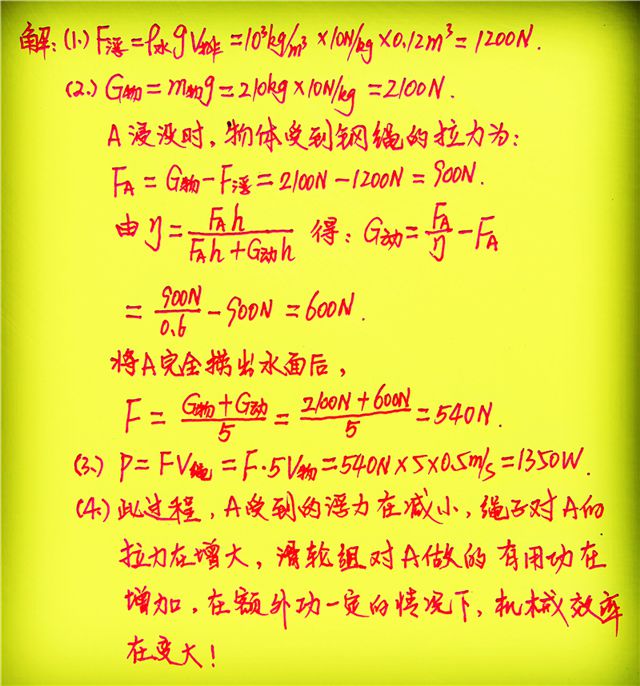 解:(1.) F浮=ρ水gV排=10³kg/m³×10N/kg×0.12m³=1200N.
(2.) G物=m物g=210kg×10N/kg=2100N.
A浸没时,物体受到钢绳的拉力为:
FA=G物-F浮=2100N-1200N=900N.
由η=FAh/(FAh+G动h) 得:G动=FA/η-FA
=900N/0.6-900N=600N.
将A完全捞出水面后,
F=(G物+G动)/5=(2100N+600N)/5=540N.
(3.) P=FV绳=F·5V物=540N×5×0.5m/s=1350W.
(4.)此过程,A受到的浮力在减小,绳子对A的
拉力在增大,滑轮组对A做的有用功在
增加,在额外功一定的情况下,机械效率
在变大!